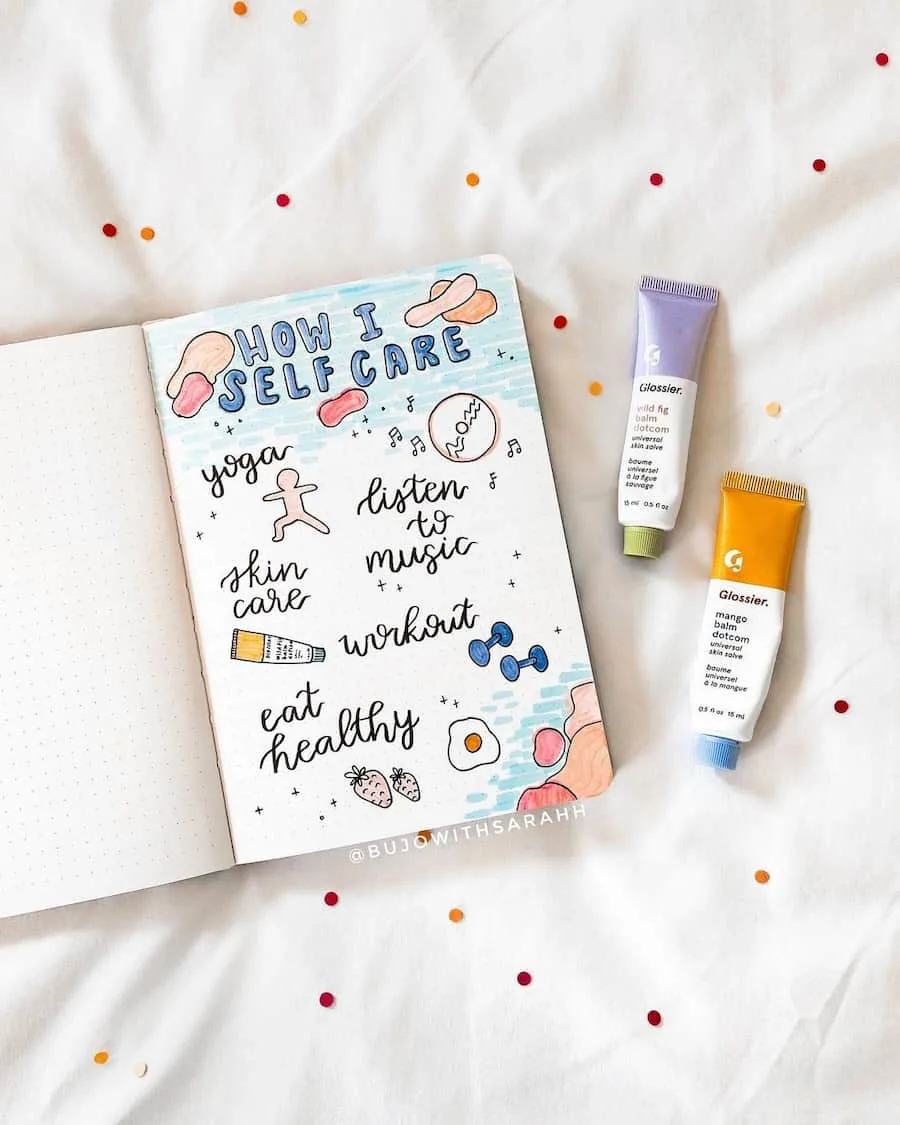 HOW I
SELF CARE
yoga
listen
to
music
skin
care
workout
eat
healthy
@BUJOWITHSARAHH
Glossier.
wild fig
balm
dotcom
universal
skin salve
baume
universel
à la figue
sauvage
15 ml 0.5 fl oz
Glossier.
mango
balm
dotcom
universal
skin salve
baume
universel
à la mangue
0.5 fl oz 15 ml